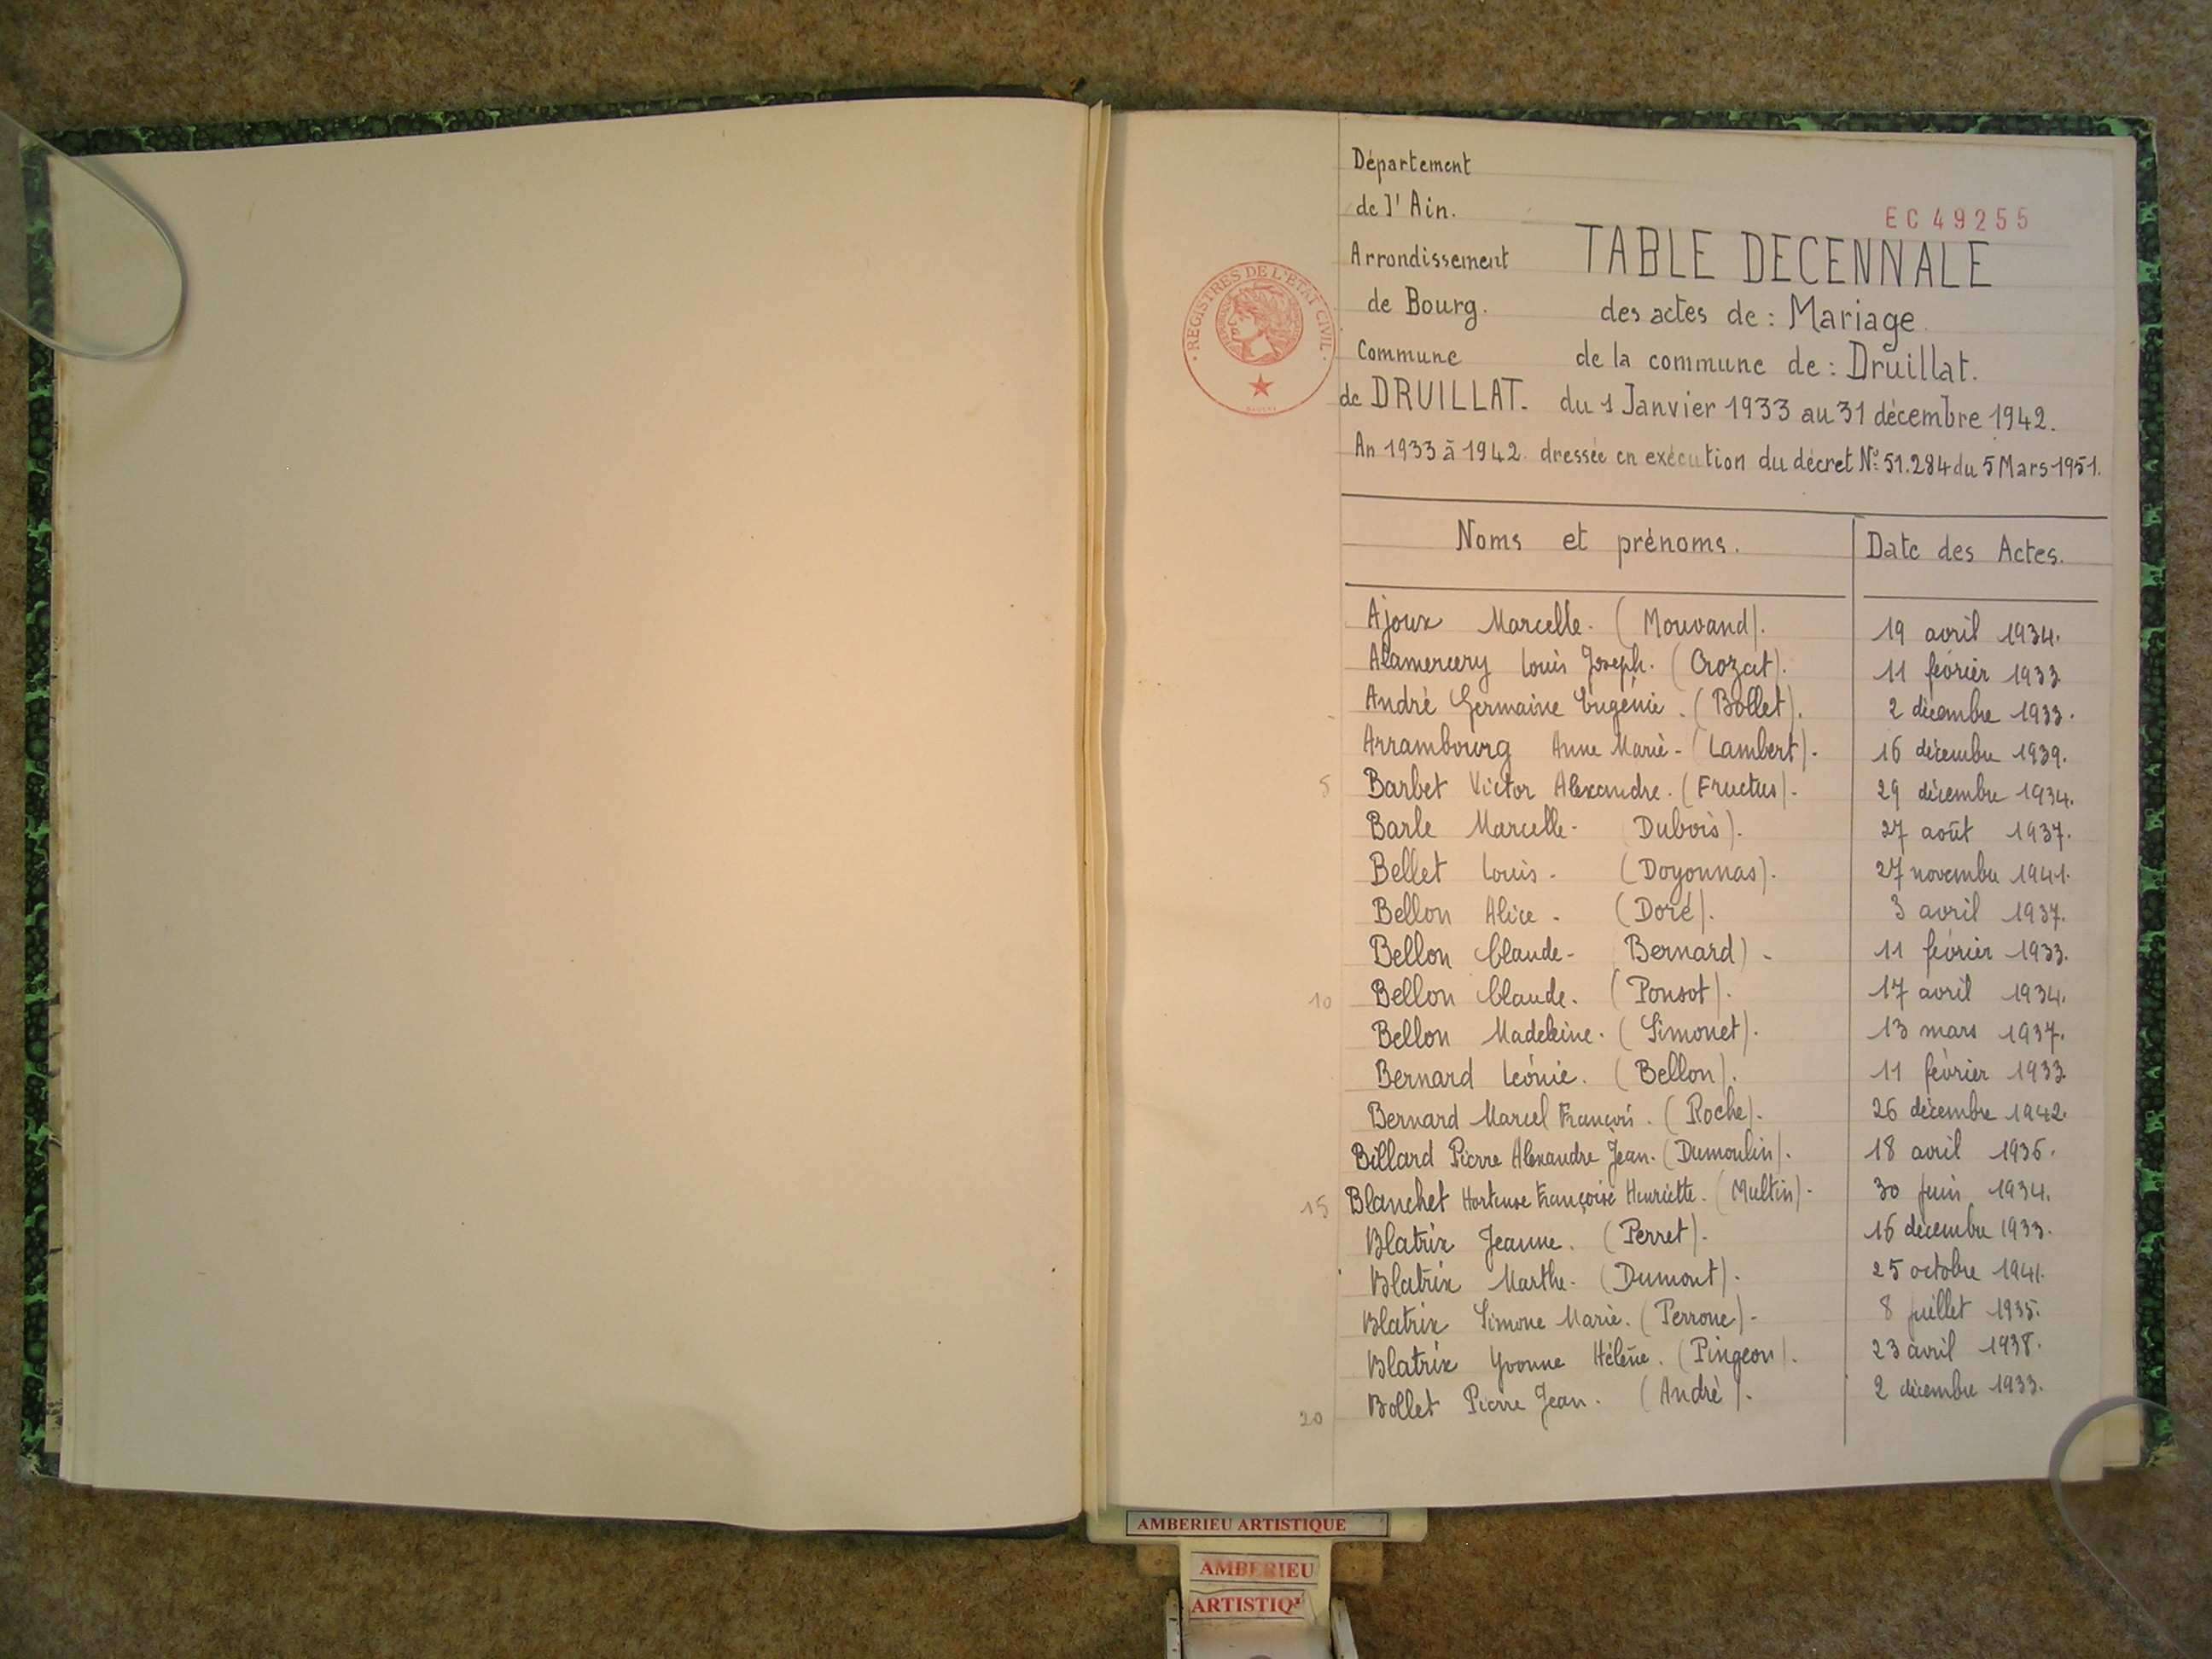 Département
de l'Ain.
EC 49255
Arrondissement
TABLE DECENNALE
de Bourg.
des actes de : Mariage
Commune
de la commune de : Druillat.
de DRUILLAT.
du 1 Janvier 1933 au 31 décembre 1942.
An 1933 à 1942
dressée en exécution du décret N° 51.284 du 5 Mars 1951.
REGISTRES DE L'ETAT CIVIL
Noms et prénoms. Date des Actes.
Ajoux Marcelle. (Mouvand). 19 avril 1934.
Alamercery Louis Joseph. (Crozat). 11 février 1933
André Germaine Eugénie. (Bollet). 2 décembre 1933.
Arrambourg Anne Marie - (Lambert). 16 décembre 1939.
5 Barbet Victor Alexandre. (Fructus). 29 décembre 1934.
Barle Marcelle - Dubois). 27 août 1937.
Bellet Louis - (Doyonnas). 27 novembre 1941.
Bellon Alice - (Doré). 3 avril 1937.
Bellon Claude - Bernard) - 11 février 1933.
10 Bellon Claude. (Ponsot). 17 avril 1934.
Bellon Madeleine. (Simonet). 13 mars 1937.
Bernard Léonie. (Bellon). 11 février 1933
Bernard Marcel François. (Roche). 26 décembre 1942.
Billard Pierre Alexandre Jean. (Dumoulin). 18 avril 1936.
15 Blanchet Hortense Françoise Henriette. (Multin) - 30 juin 1934.
Blatrix Jeanne. (Perret). 16 décembre 1933.
Blatrix Marthe - (Dumont). 25 octobre 1941.
Blatrix Simone Marie. (Perrone) - 8 juillet 1935.
Blatrix Yvonne Hélène. (Pingeon). 23 avril 1938.
20 Bollet Pierre Jean. (André). 2 décembre 1933.
AMBERIEU ARTISTIQUE
AMBERIEU
ARTISTIQ